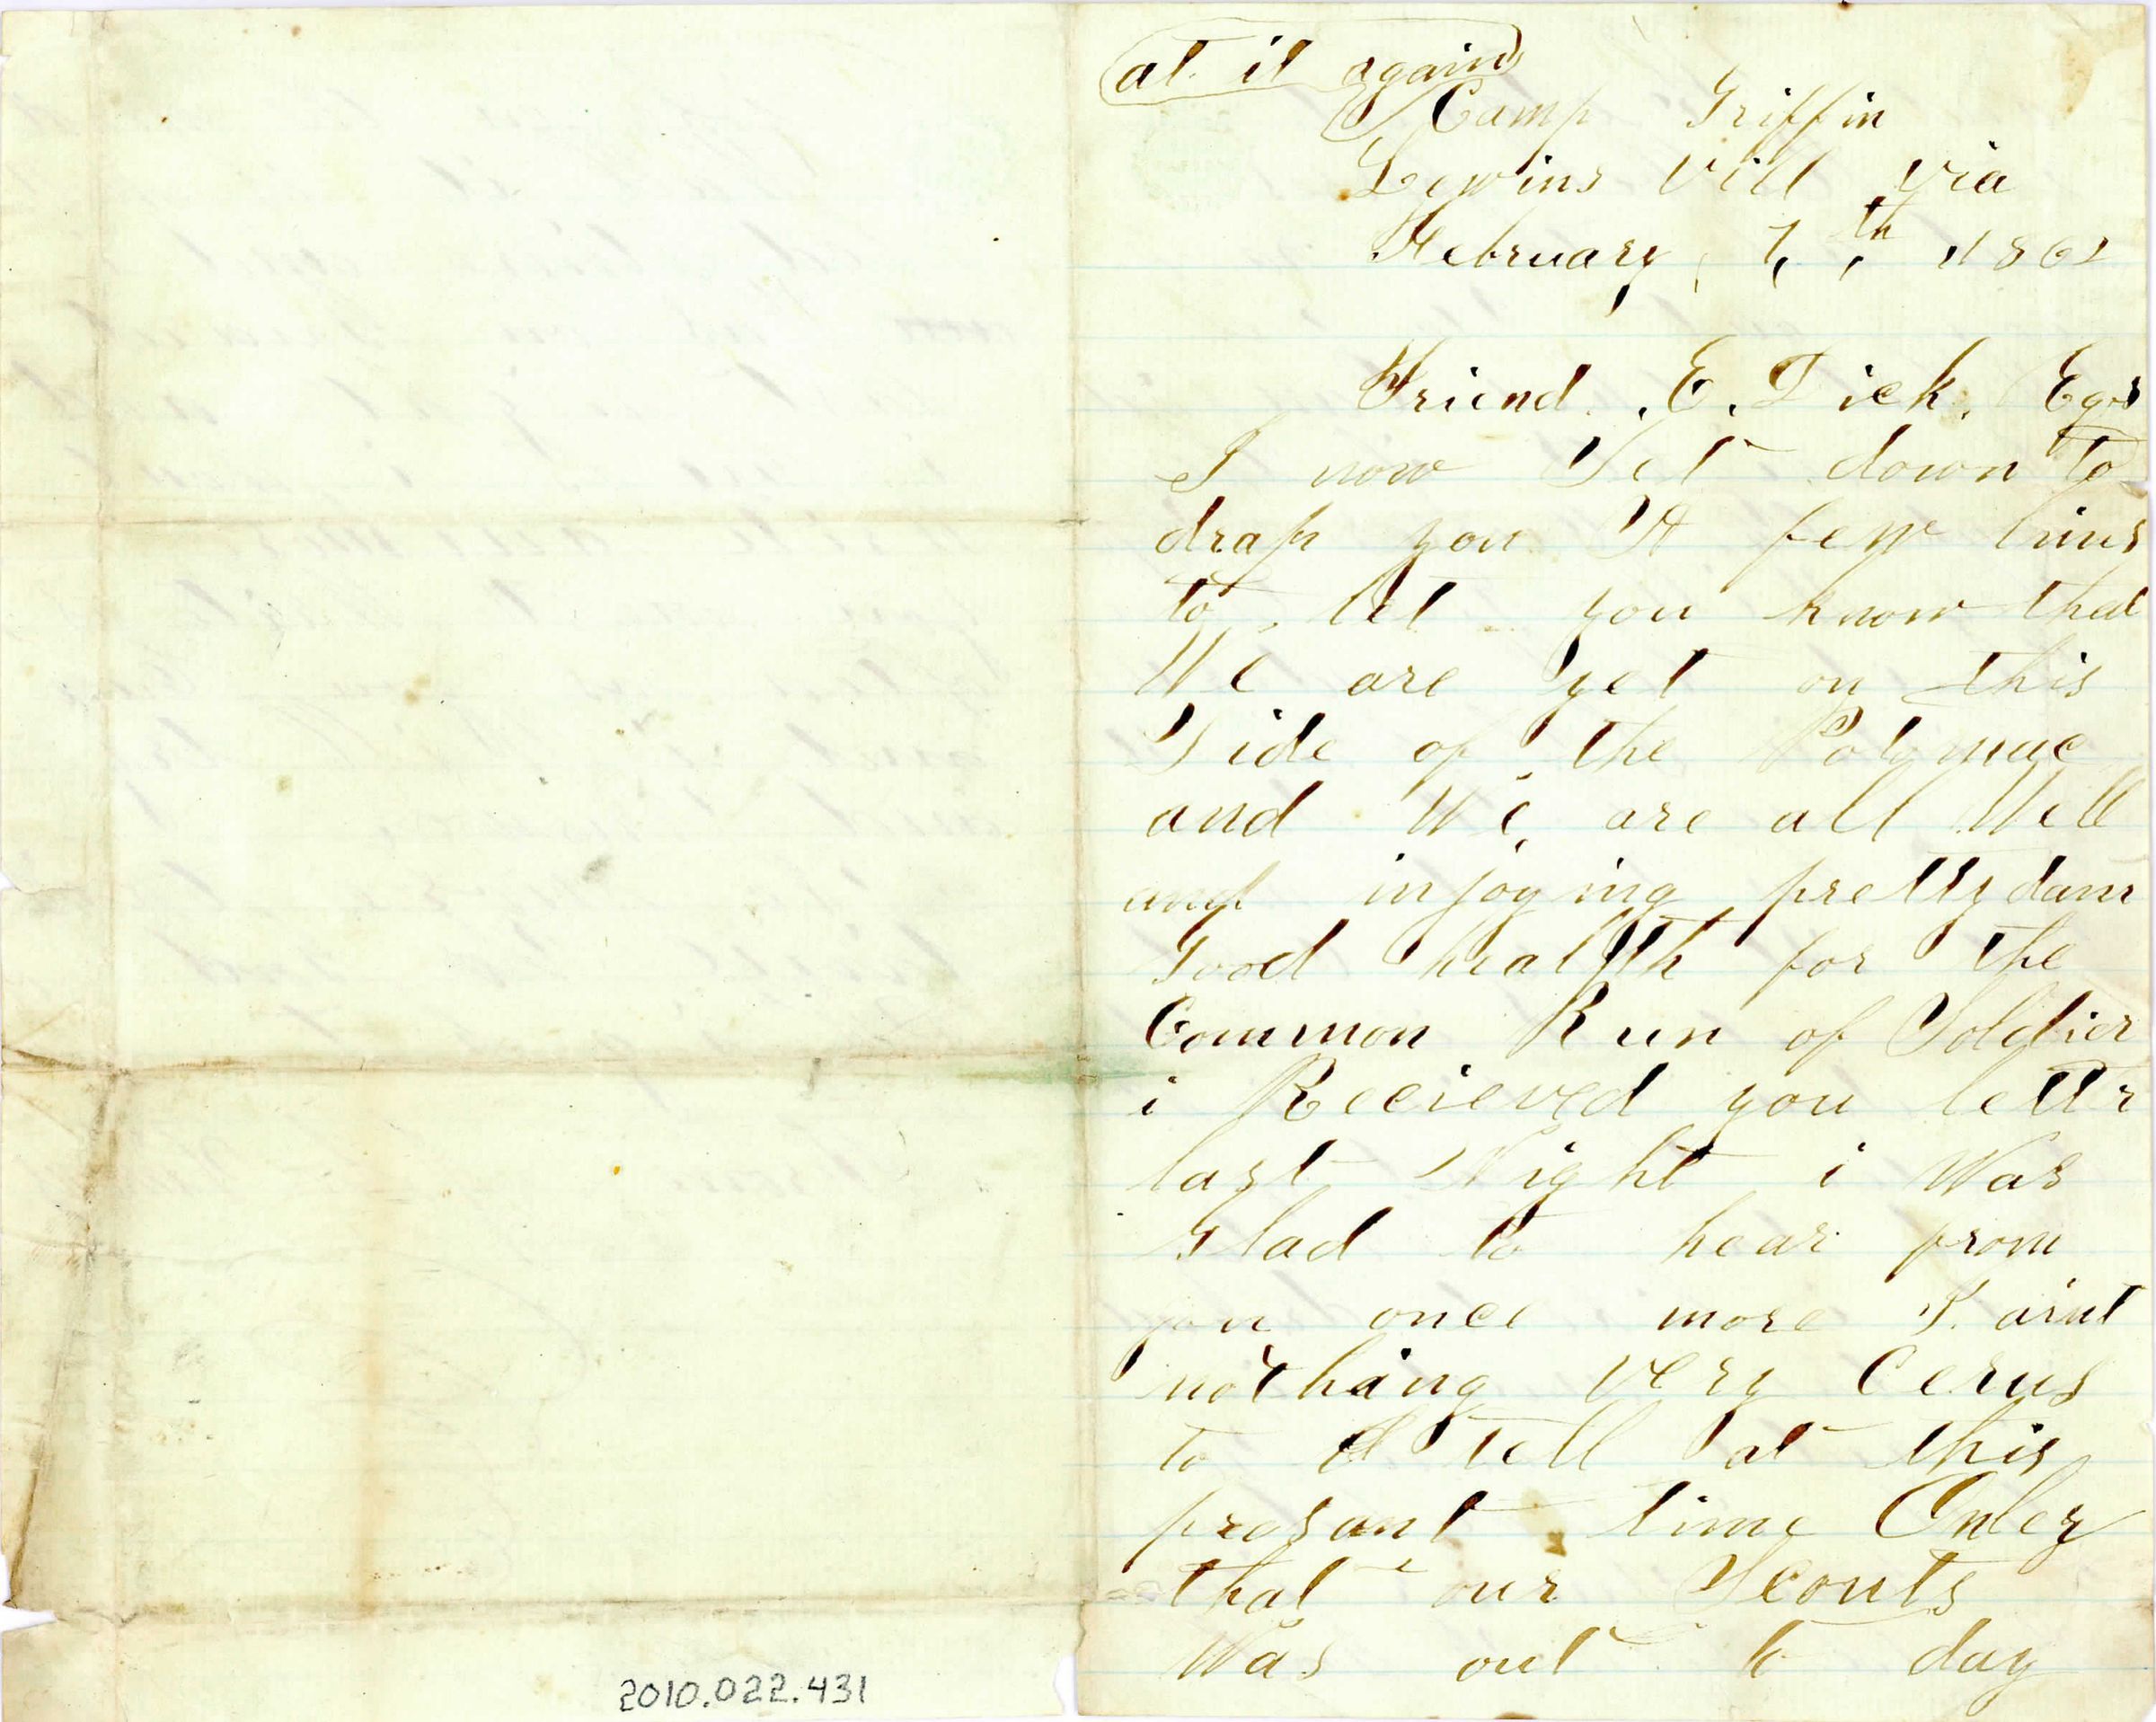 at it again
Camp Griffin
Lewins Vill via
February, 7,th, 1862
Friend. E. Dick. Eqs
I now Set down to
drap you A few lines
to let you know that
We are yet on this
Side of the Potomac
and We are all Well
and injoying pretty dam
Good health for the
Common Run of Soldier
i Recieved you letter
last Night i Was
Glad to hear from
you once more I. aint
nothing very Cerus
to tell at this
presant time Onley
that our Scouts
Was out to day
2010.022.431